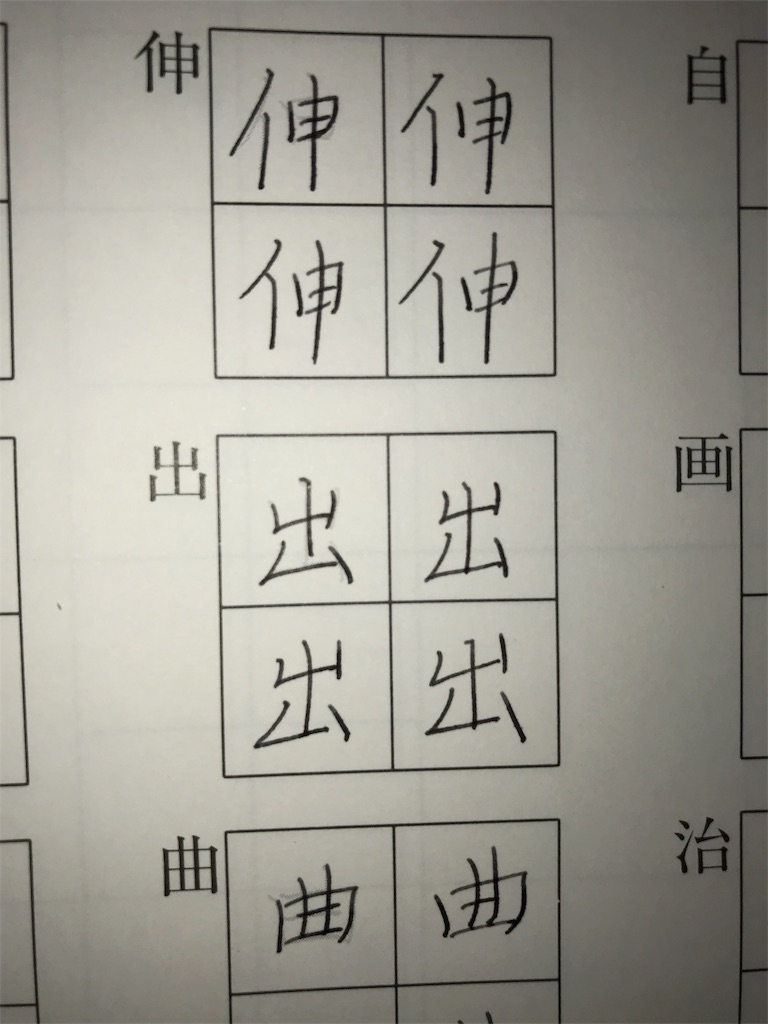 伸 伸 伸 自
伸 伸
出 出 出 画
出 出
曲 曲 曲 治